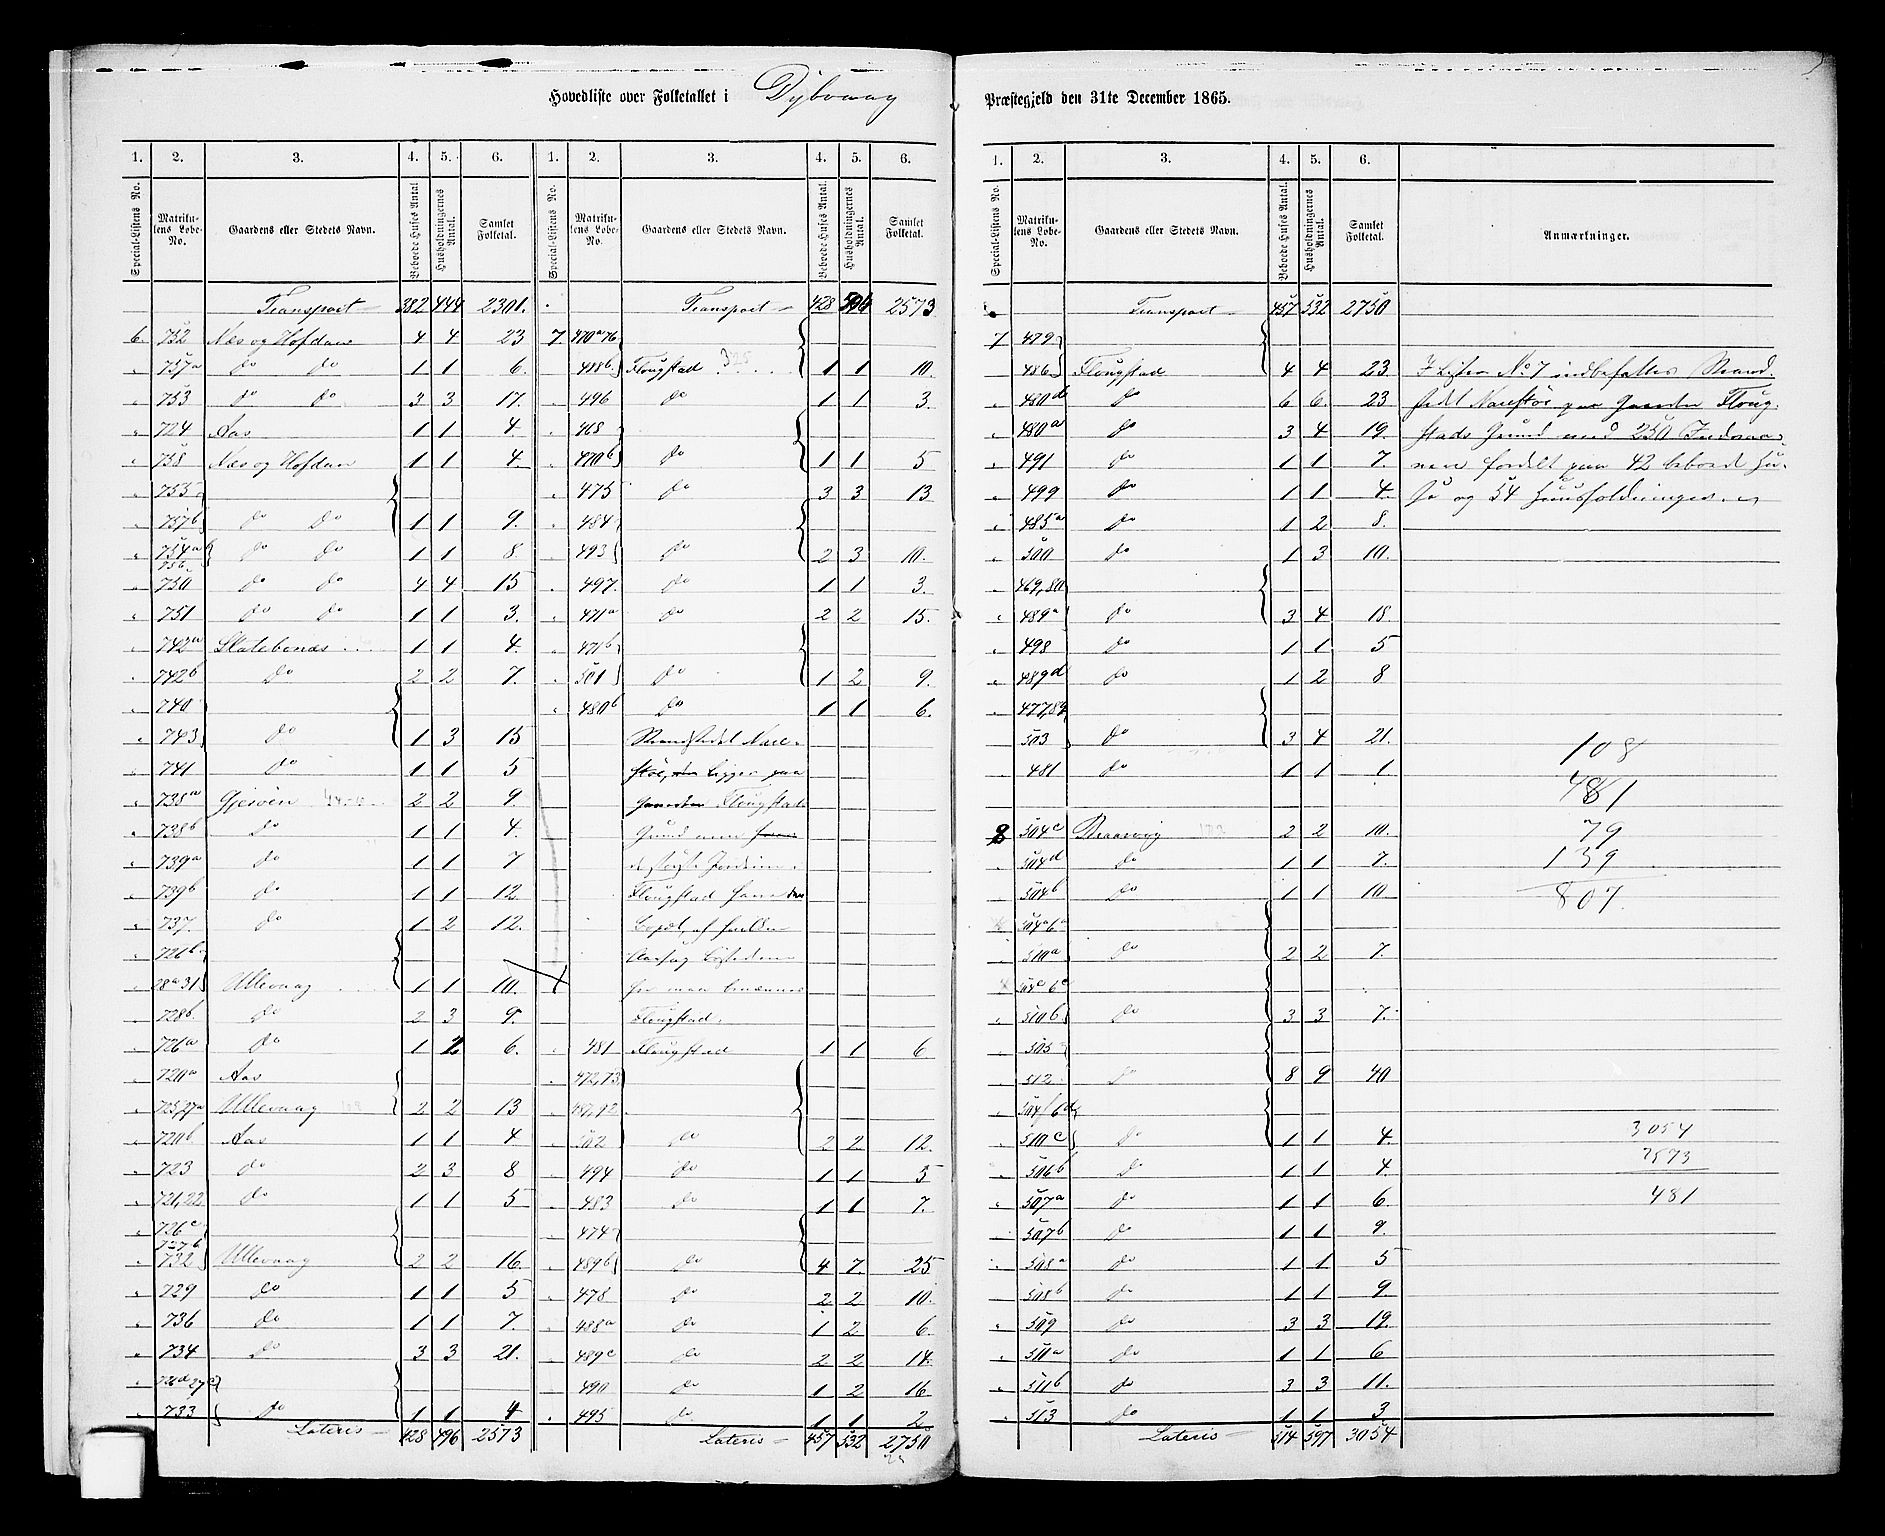 Hovedliste over Folketallet i Dybvaag Præstegjeld den 31te December 1865.
1. 2. 3. 4. 5. 6. 1. 2. 3. 4. 5. 6.
Special-Listens No. Matrikulens Løbe-No. Gaardens eller Stedets Navn. Beboede Huses Antal. Husholdningernes Antal. Samlet Folketal. Special-Listens No. Matrikulens Løbe-No. Gaardens eller Stedets Navn. Beboede Huses Antal. Husholdningernes Antal. Samlet Folketal.
Transport 382 444 2301.
6. 752 Næs og Hofdan 4 4 23
757a do do 1 1 6.
753 do do 3 3 17.
724 Aas 1 1 4.
758 Næs og Hofdan 1 1 4.
755
757b do do 1 1 9.
754a
756 do do 1 1 8.
750 do do 4 4 15
751 do do 1 1 3.
742a Statebonæs 1 1 4.
742b do 2 2 7.
740
743 do 1 3 15
741 do 1 1 5
738a Gjesøen 2 2 9.
738b do 1 1 4.
739a do 1 1 7
739b do 1 1 12.
737. do 1 2 12.
721b
28a31 Ullevaag 1 1 10.
728b do 2 3 9.
726a do 1 2 6.
720a Aas
725,27a Ullevaag 2 2 13
720b Aas 1 1 4
723 do 2 3 8
721,22 do 1 1 5
726c
727b
732 Ullevaag 2 2 16.
729 do 1 1 5
736 do 1 1 7.
734 do 3 3 21.
726d 27c
733 do 1 1 4
Lateris 428 496 2573
Transport 428 496 2573
7. 470a 76
488b Flougstad 1 1 10.
496 do 1 1 3.
468
470b do 1 1 5
475 do 3 3 13
484
493 do 2 3 10.
497. do 1 1 3.
471a do 2 2 15.
471b
501 do 1 2 9.
480b do 1 1 6.
Strandstedet Nare-
støe, ligger paa
Gaarden Flougstads
Grund men
Flougstad
Flougstad.
481 Flougstad 1 1 6
472,73
487,92
502 do 2 2 12.
494 do 1 1 5
483 do 1 1 7.
474
489b do 4 7. 25
478 do 2 2 10.
488a do 1 2 6.
489c do 2 2 14.
490 do 1 2 16
495 do 1 1 2
Lateris 457 532 2750
1. 2. 3. 4. 5. 6.
Special-Listens No. Matrikulens Løbe-No. Gaardens eller Stedets Navn. Beboede Huses Antal. Husholdningernes Antal. Samlet Folketal. Anmærkninger.
Transport 457 532 2750
7 479
486 Flougstad 4 4 23 I Listen No 7 indbefattes Strand-
480d do 6 6. 23 stedet Narestøe paa Gaarden Floug-
480a do 3 4 19. stads Grund med 250 Indvaa-
491 do 1 1 7. nere fordelt paa 42 beboede Hu-
499 do 1 1 4. se og 54 Huusholdninger.
485a do 1 2 8.
500 do 1 3 10.
469,80
489a do 3 4 18.
498 do 1 1 5
489d do 1 2 8
477,82
503 do 3 4 21. 108
481 do 1 1 1
481
8 504c Braasvig 2 2 10. 79
504d do 1 1 7. 139
504b do 1 1 10. 807.
504a 6a
510a do 2 2 7.
504e 6c
510b do 3 3 7.
505
512 do 8 9 40
504f 6d
510c do 1 1 4. 3054
506b do 1 1 4. 2573
507a do 1 1 6 481
507b do 1 1 9.
508a do 1 1 5
508b do 1 1 9
509 do 3 3 19.
511a do 1 1 6
511b do 3 3 11.
513 do 1 1 3
Lateris 514 597 3054